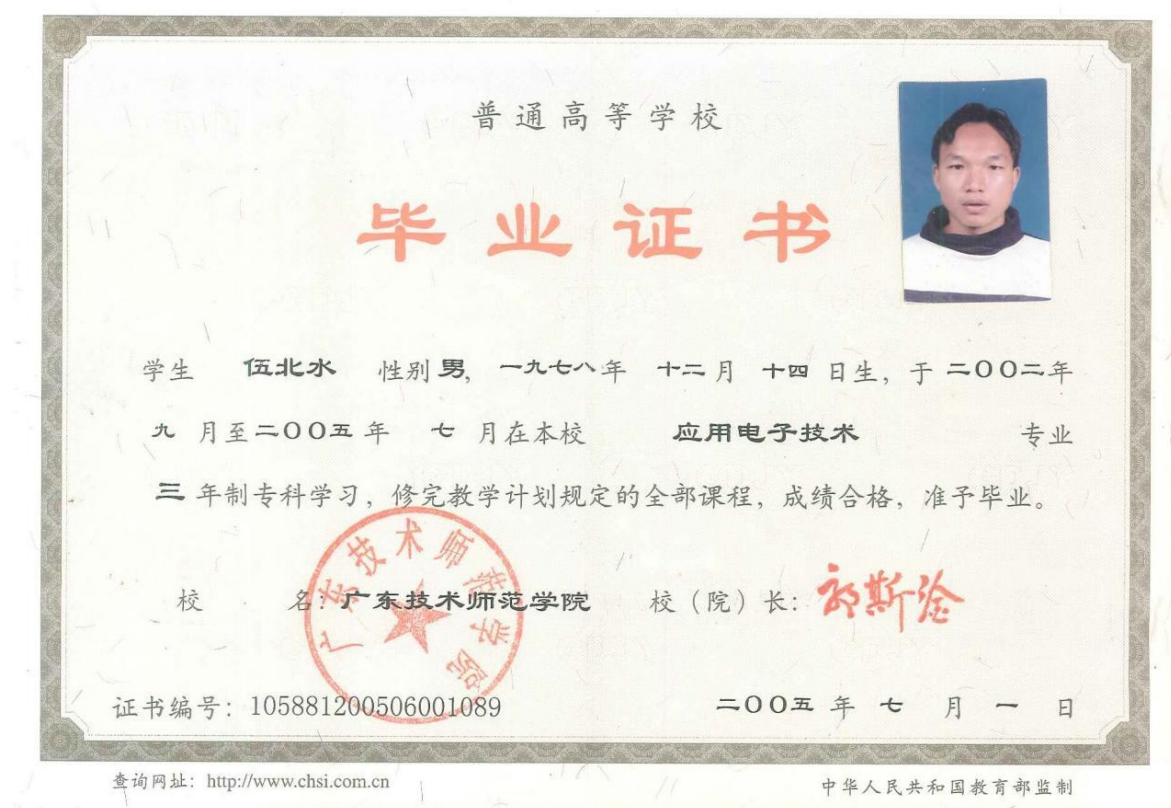 普通高等学校
毕业证书
学生 伍北水 性别 男, 一九七八年 十二月 十四 日生, 于 二〇〇二年
九 月至二〇〇五年 七 月在本校 应用电子技术 专业
三 年制专科学习, 修完教学计划规定的全部课程, 成绩合格, 准予毕业。
广东技术师范学院
校 名: 广东技术师范学院 校(院)长: 郭斯淦
证书编号: 105881200506001089 二〇〇五 年 七 月 一 日
查询网址: http://www.chsi.com.cn 中华人民共和国教育部监制